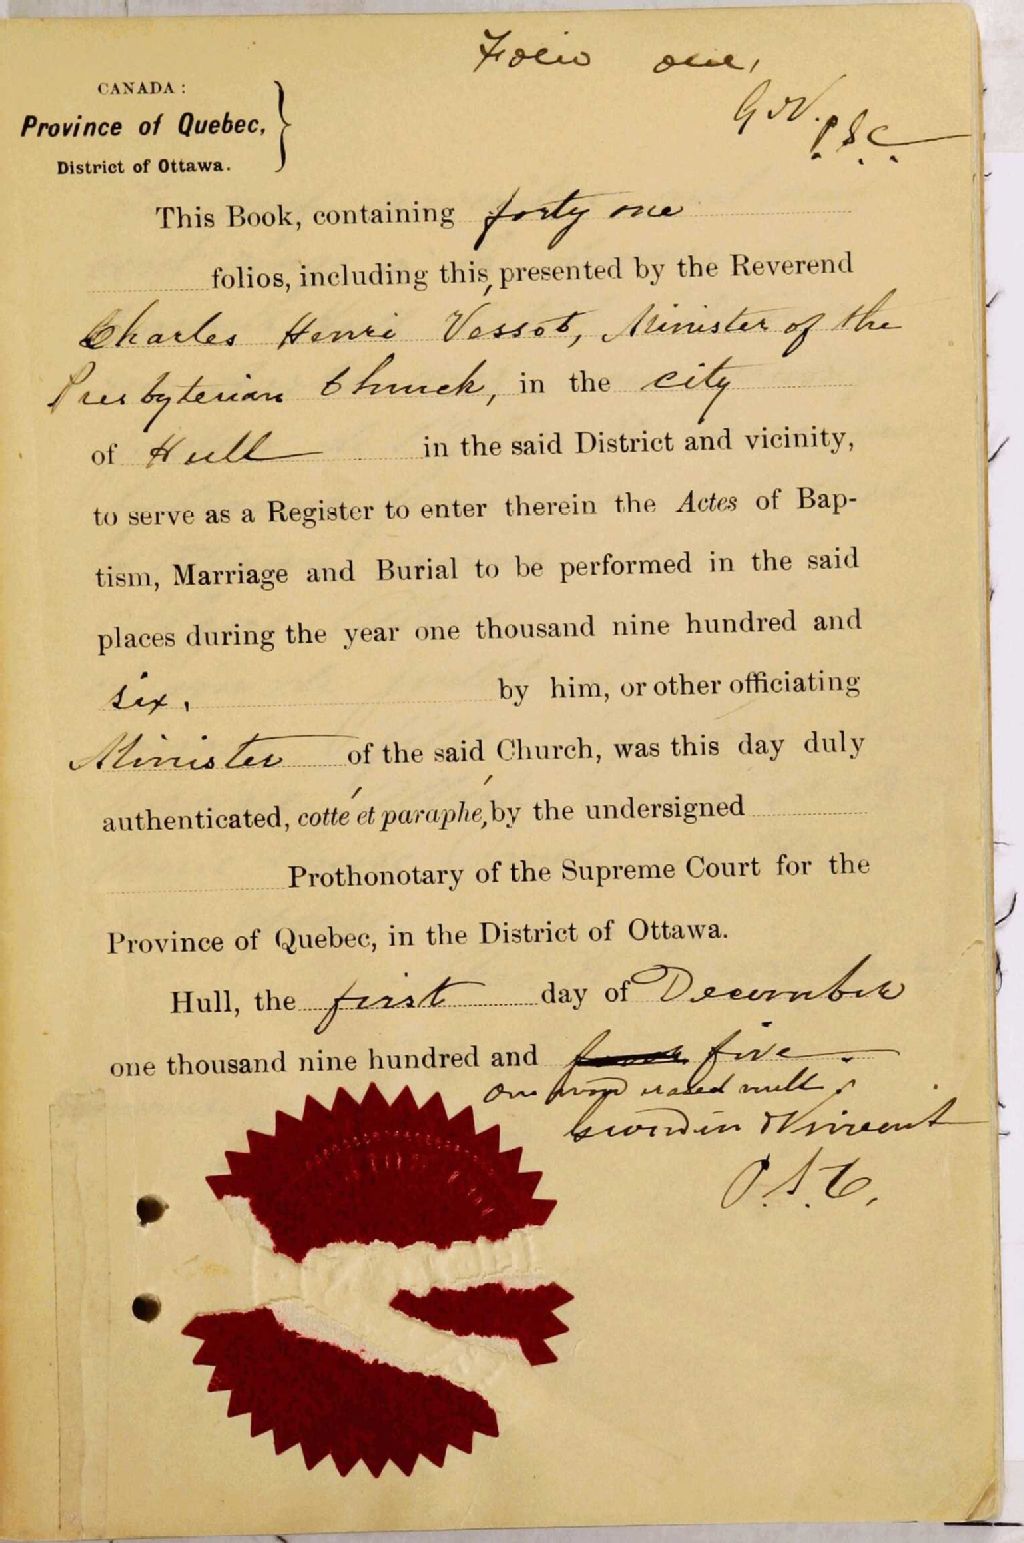 Folio one,
G.V. P.S.C.
CANADA:
Province of Quebec,
District of Ottawa.
This Book, containing forty one
folios, including this, presented by the Reverend
Charles Henri Vessot, Minister of the
Presbyterian Church, in the city
of Hull in the said District and vicinity,
to serve as a Register to enter therein the Actes of Bap-
tism, Marriage and Burial to be performed in the said
places during the year one thousand nine hundred and
six, by him, or other officiating
Minister of the said Church, was this day duly
authenticated, cotté et paraphé, by the undersigned
Prothonotary of the Supreme Court for the
Province of Quebec, in the District of Ottawa.
Hull, the first day of December
one thousand nine hundred and five.
one word erased null
Vincent
P.S.C.